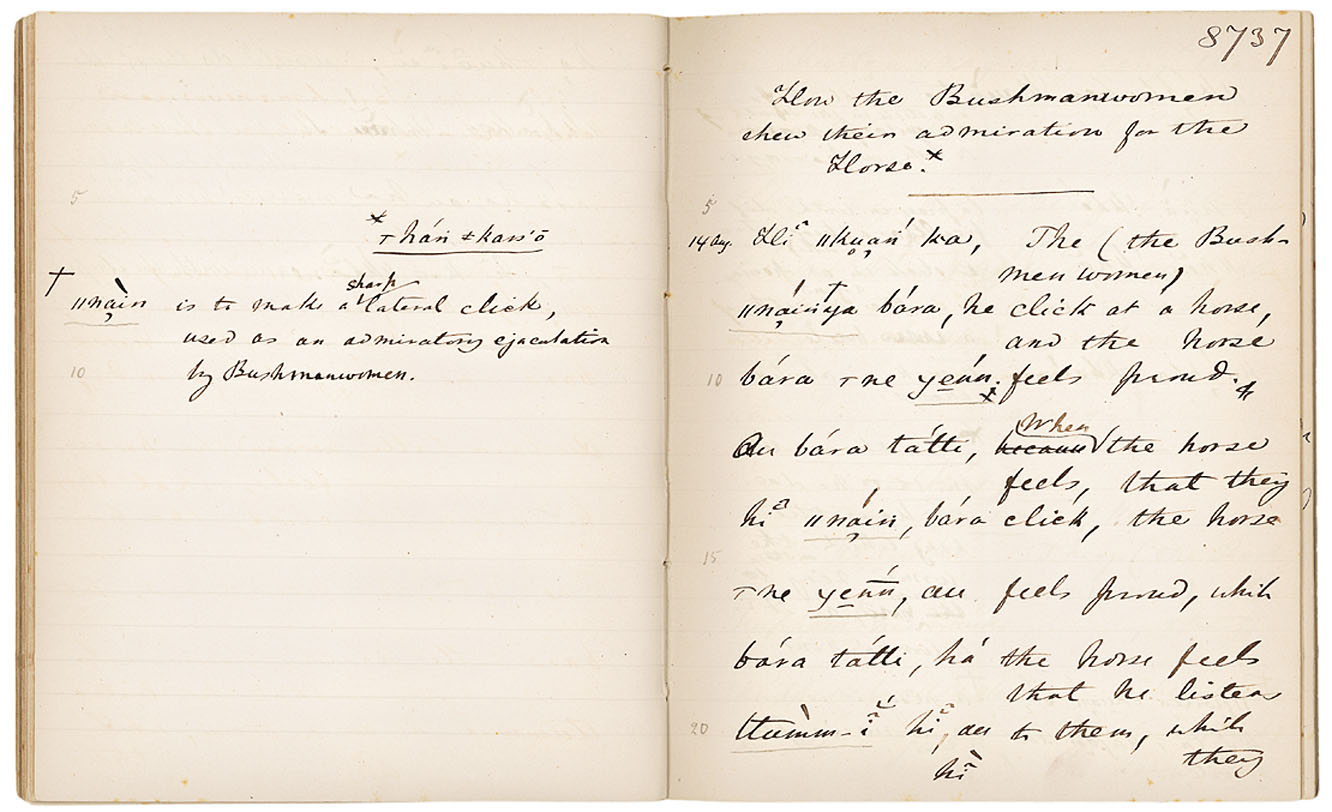 5
× ⊤hán ≠kass'ō
† ǁnàin is to make a sharp lateral click,
used as an admiratory ejaculation
10 by Bushmanwomen.
8737
How the Bushmanwomen
shew their admiration for the
Horse.×
5
14 Aug. Hĩ ǁkuaṅ ka, The (the Bush-
men women)
ǁnáiṅ†ya bára, he click at a horse,
and the horse
10 bára ⊤ne yeńn. feels proud.
Au bára tátti, because When the horse
feels, that they
hĩ ǁnáin, bára click, the horse
15
⊤ne yeńn, au feels proud, while
bára tátti, há the horse feels
that he listens
20 ttùmm-ĩ hĩ, au to them, while
hĩ they